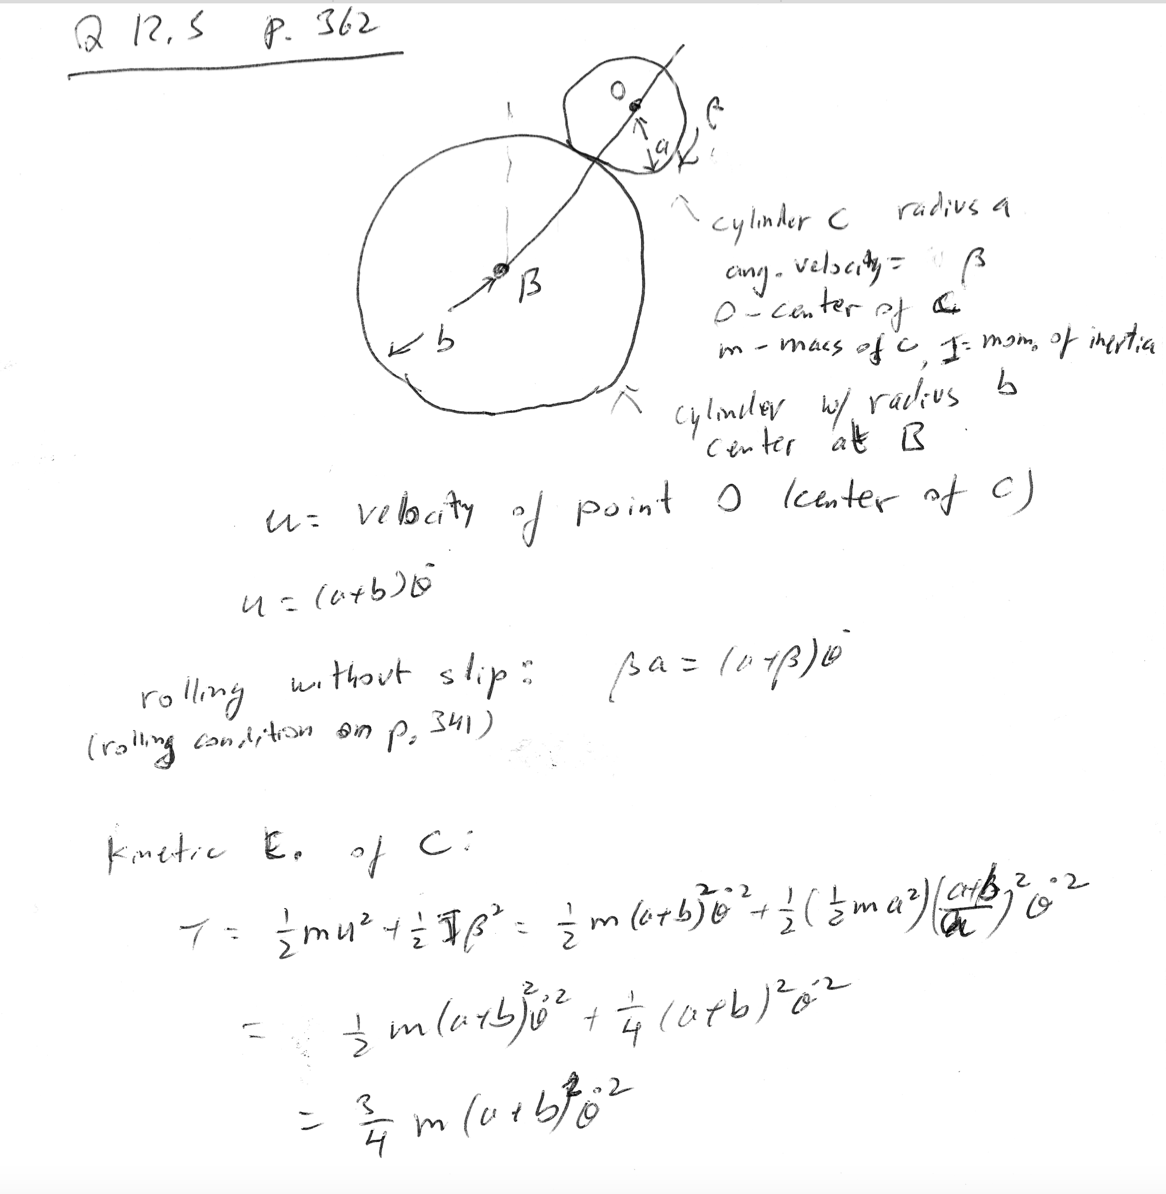 Q 12.5 p. 362
O
β
a
cylinder C radius a
ang. velocity = β
B
O - center of C
b
m - mass of C, I = mom. of inertia
cylinder w/ radius b
center at B
u = velocity of point O (center of C)
u = (a+b)θ̇
rolling without slip: βa = (a+β)θ̇
(rolling condition on p. 341)
Kinetic E. of C:
T = 1/2 mu² + 1/2 Iβ² = 1/2 m(a+b)²θ̇² + 1/2 (1/2 ma²)((a+b)/a)²θ̇²
= 1/2 m(a+b)²θ̇² + 1/4 (a+b)²θ̇²
= 3/4 m(a+b)²θ̇²